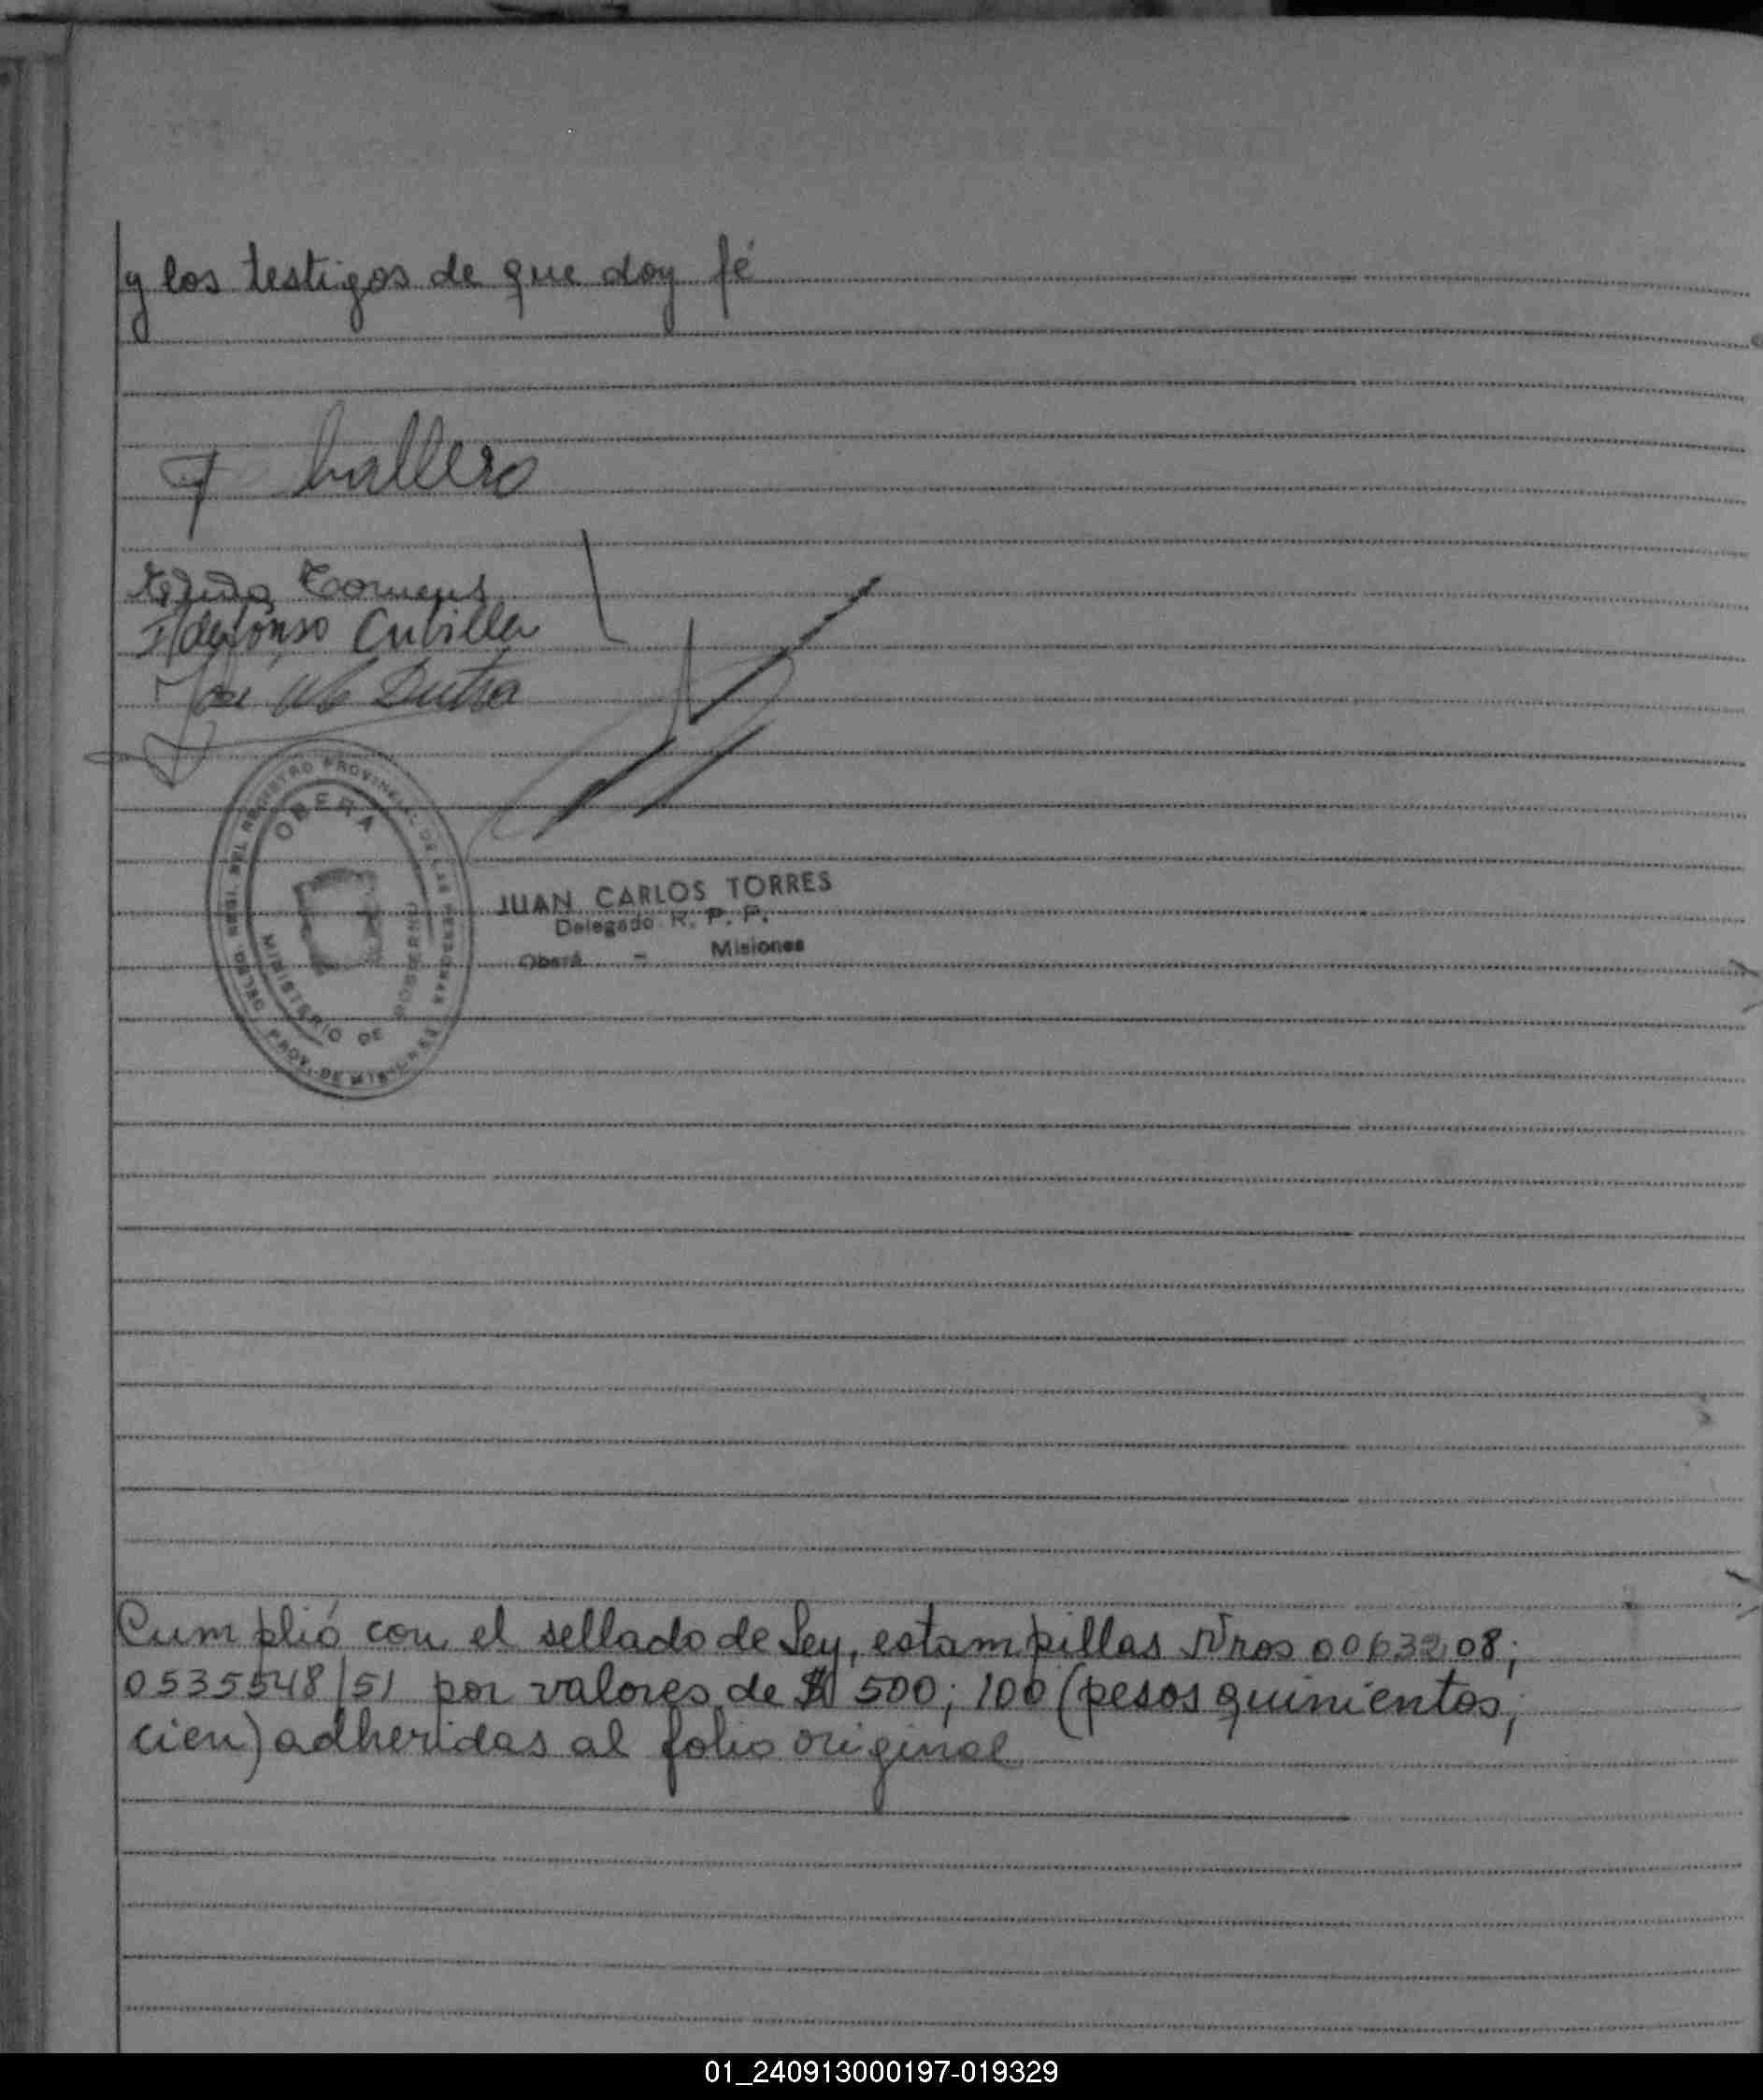 y los testigos de que doy fé
Ildefonso Cubilla
José Dutra
DELEG. DEL REGISTRO PROVINCIAL DE LAS PERSONAS
OBERA
MINISTERIO DE GOBIERNO
PROV. DE MISIONES
JUAN CARLOS TORRES
Delegado R. P. P.
Oberá - Misiones
Cumplió con el sellado de Ley, estampillas Nros 0063208;
0535548/51 por valores de $ 500; 100 (pesos quinientos;
cien) adheridas al folio original
01_240913000197-019329